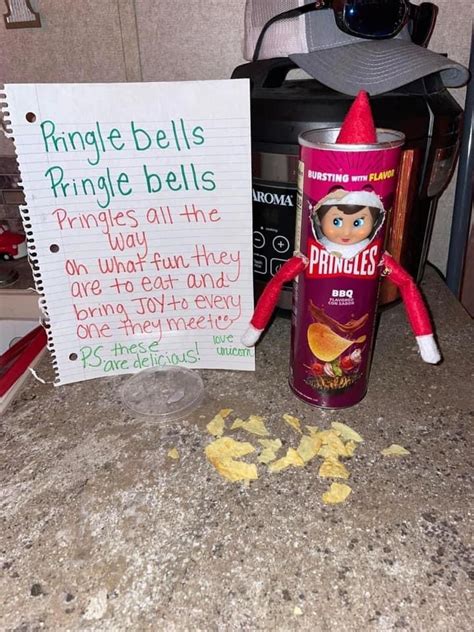 Pringle bells
Pringle bells
Pringles all the
way
oh what fun they
are to eat and
bring JOY to every
one they meet
PS these
are delicious!
love
unicorn
AROMA
BURSTING WITH FLAVOR
PRINGLES
BBQ
FLAVORED
CON SABOR